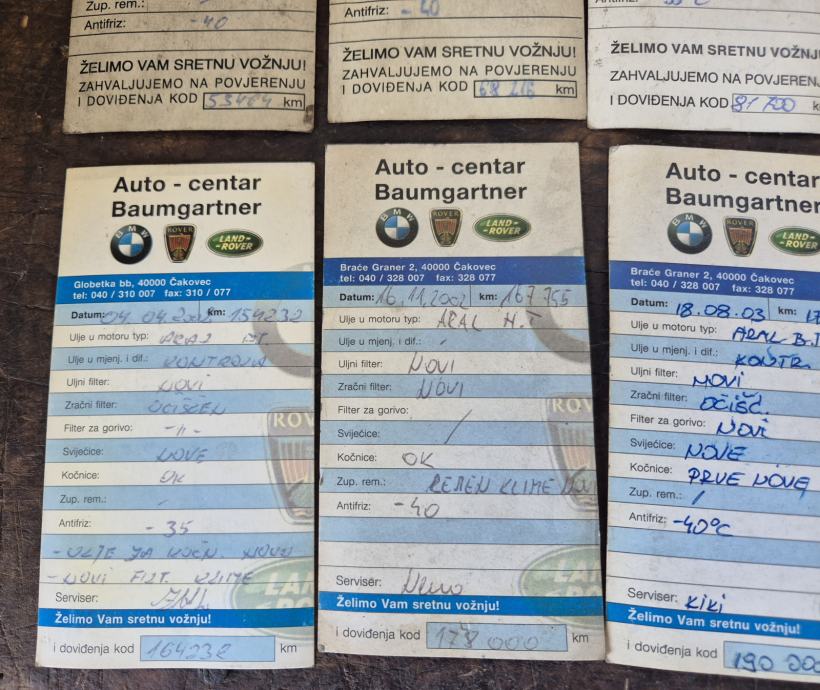 Zup. rem.:
Antifriz: -40
ŽELIMO VAM SRETNU VOŽNJU!
ZAHVALJUJEMO NA POVJERENJU
I DOVIĐENJA KOD 53464 km
Antifriz: -40
ŽELIMO VAM SRETNU VOŽNJU!
ZAHVALJUJEMO NA POVJERENJU
I DOVIĐENJA KOD 68 216 km
ŽELIMO VAM SRETNU VOŽNJU
ZAHVALJUJEMO NA POVJEREN
I DOVIĐENJA KOD 81 700
Auto - centar
Baumgartner
BMW ROVER LAND-ROVER
Globetka bb, 40000 Čakovec
tel: 040 / 310 007 fax: 310 / 077
Datum: 04.04.2002 km: 154232
Ulje u motoru tip: ARAL HT.
Ulje u mjenj. i dif.: KONTROLA
Uljni filter: NOVI
Zračni filter: OČIŠĆEN
Filter za gorivo: -11-
Svijećice: NOVE
Kočnice: OK
Zup. rem.: /
Antifriz: -35
- ULJE ZA KOČN. NOVO
- NOVI FILT. KLIME
Serviser:
Želimo Vam sretnu vožnju!
i doviđenja kod 164232 km
Auto - centar
Baumgartner
BMW ROVER LAND-ROVER
Braće Graner 2, 40000 Čakovec
tel: 040 / 328 007 fax: 328 077
Datum: 16.11.2002 km: 167 755
Ulje u motoru tip: ARAL H.T
Ulje u mjenj. i dif.: /
Uljni filter: NOVI
Zračni filter: NOVI
Filter za gorivo:
Svijećice: /
Kočnice: OK
Zup. rem.: REMEN KLIME NOVI
Antifriz: -40
Serviser:
Želimo Vam sretnu vožnju!
i doviđenja kod 178 000 km
Auto - centar
Baumgartner
BMW ROVER LAND-ROVER
Braće Graner 2, 40000 Čakovec
tel: 040 / 328 007 fax: 328 077
Datum: 18.08.03 km: 17
Ulje u motoru tip: ARAL B.T
Ulje u mjenj. i dif.: KONTR.
Uljni filter: NOVI
Zračni filter: OČIŠĆ.
Filter za gorivo: NOVI
Svijećice: NOVE
Kočnice: PRVE NOVE
Zup. rem.: /
Antifriz: -40°C
Serviser: KIKI
Želimo Vam sretnu vožnju!
i doviđenja kod 190 000